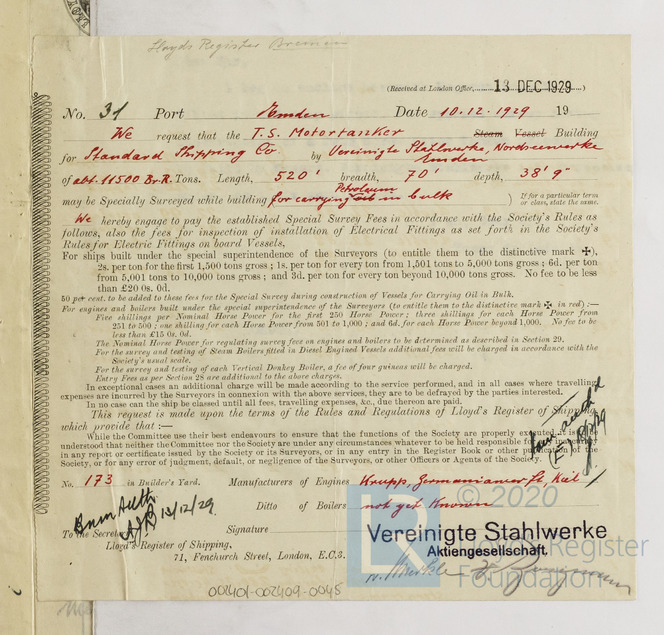 Lloyds Register Bremen
(Received at London Office, 13 DEC 1929)
No. 31 Port Emden Date 10.12.1929 19
We request that the T.S. Motortanker Steam Vessel Building
for Standard Shipping Co by Vereinigte Stahlwerke, Nordseewerke
Emden
of abt. 11500 Br. R. Tons. Length, 520' breadth, 70' depth, 38' 9"
Petroleum
may be Specially Surveyed while building for carrying oil in bulk ) If for a particular term
or class, state the same.
We hereby engage to pay the established Special Survey Fees in accordance with the Society's Rules as
follows, also the fees for inspection of installation of Electrical Fittings as set forth in the Society's
Rules for Electric Fittings on board Vessels,
For ships built under the special superintendence of the Surveyors (to entitle them to the distinctive mark ✠),
2s. per ton for the first 1,500 tons gross ; 1s. per ton for every ton from 1,501 to 5,000 tons gross ; 6d. per ton
from 5,001 tons to 10,000 tons gross ; and 3d. per ton for every ton beyond 10,000 tons gross. No fee to be less
than £20 0s. 0d.
50 per cent. to be added to these fees for the Special Survey during construction of Vessels for Carrying Oil in Bulk.
For engines and boilers built under the special superintendence of the Surveyors (to entitle them to the distinctive mark ✠ in red) :—
Five shillings per Nominal Horse Power for the first 250 Horse Power ; three shillings for each Horse Power from
251 to 500 ; one shilling for each Horse Power from 501 to 1,000 ; and 6d. for each Horse Power beyond 1,000. No fee to be
less than £15 0s. 0d.
The Nominal Horse Power for regulating survey fee on engines and boilers to be determined as described in Section 29.
For the survey and testing of Steam Boilers fitted in Diesel Engined Vessels additional fees will be charged in accordance with the
Society's usual scale.
For the survey and testing of each Vertical Donkey Boiler, a fee of four guineas will be charged.
Entry Fees as per Section 28 are additional to the above charges.
In exceptional cases an additional charge will be made according to the service performed, and in all cases where travelling
expenses are incurred by the Surveyors in connexion with the above services, they are to be defrayed by the parties interested.
In no case can the ship be classed until all fees, travelling expenses, &c., due thereon are paid.
This request is made upon the terms of the Rules and Regulations of Lloyd's Register of Shipping
which provide that :—
While the Committee use their best endeavours to ensure that the functions of the Society are properly executed, it is
understood that neither the Committee nor the Society are under any circumstances whatever to be held responsible for
in any report or certificate issued by the Society or its Surveyors, or in any entry in the Register Book or other publication of the
Society, or for any error of judgment, default, or negligence of the Surveyors, or other Officers or Agents of the Society.
No. 173 in Builder's Yard. Manufacturers of Engines Krupp, Germaniawerft, Kiel
Ditto of Boilers not yet Known
13/12/29
To the Secretary Signature
Lloyd's Register of Shipping,
71, Fenchurch Street, London, E.C.3.
Vereinigte Stahlwerke
Aktiengesellschaft.
© 2020
Lloyd's Register
Foundation
001401-001409-0045